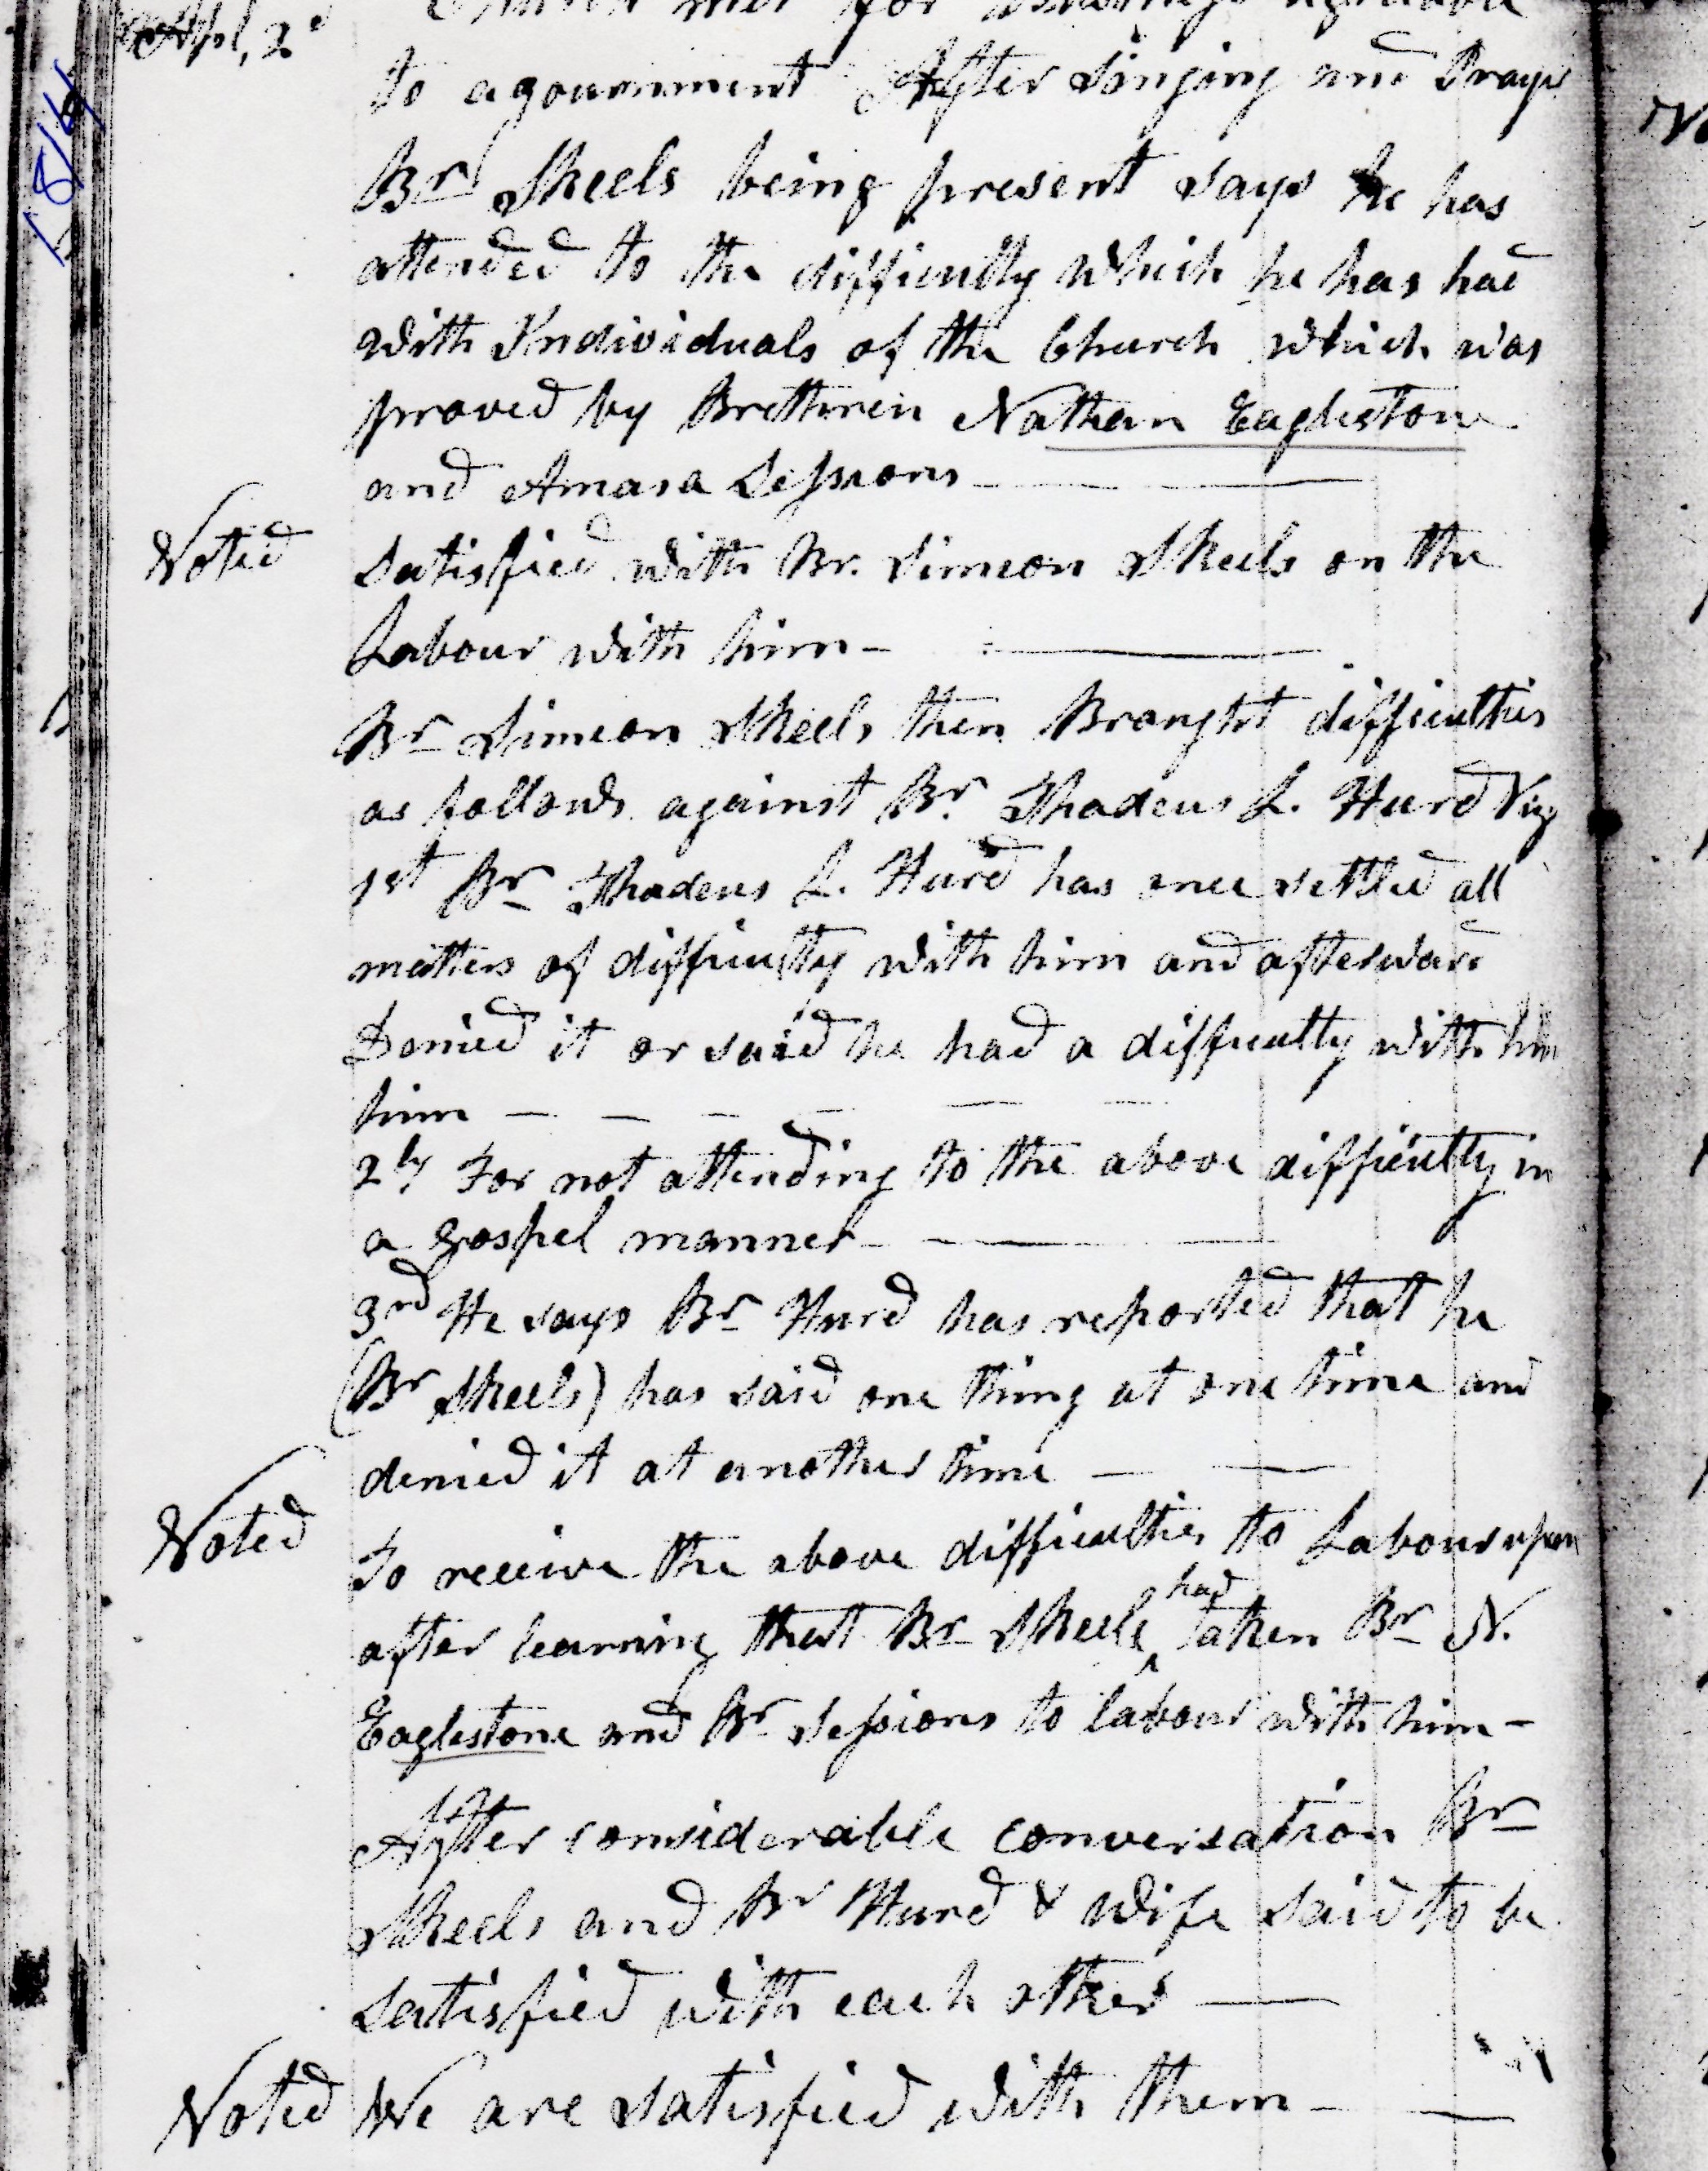 Apl, 2d
Church met for
to agournment After Singing and Prayr
1814
Br Skeels being present says he has
attended to the difficulty which he has had
with Individuals of the Church which was
proved by Brethren Nathan Eaglestone
and Amasa Sessions
Voted Satisfied with Br. Simeon Skeels on the
Labour with him
Br Simeon Skeels then Brought difficulties
as follows against Br. Thadeus L. Hurd Viz
1st Br Thadeus L. Hurd has once settled all
matters of difficulty with him and afterward
Denied it or said he had a difficulty with him
him
2ly For not attending to the above difficulty in
a gospel manner
3rd He says Br Hurd has reported that he
(Br Skeels) has said one thing at one time and
denied it at another time
Voted To receive the above difficulties to Labour upon
after learning that Br Skeels ^had taken Br N.
Eaglestone and Br Sessions to labour with him
After considerable conversation Br
Skeels and Br Hurd & Wife said to be
satisfied with each other
Voted We are satisfied with them